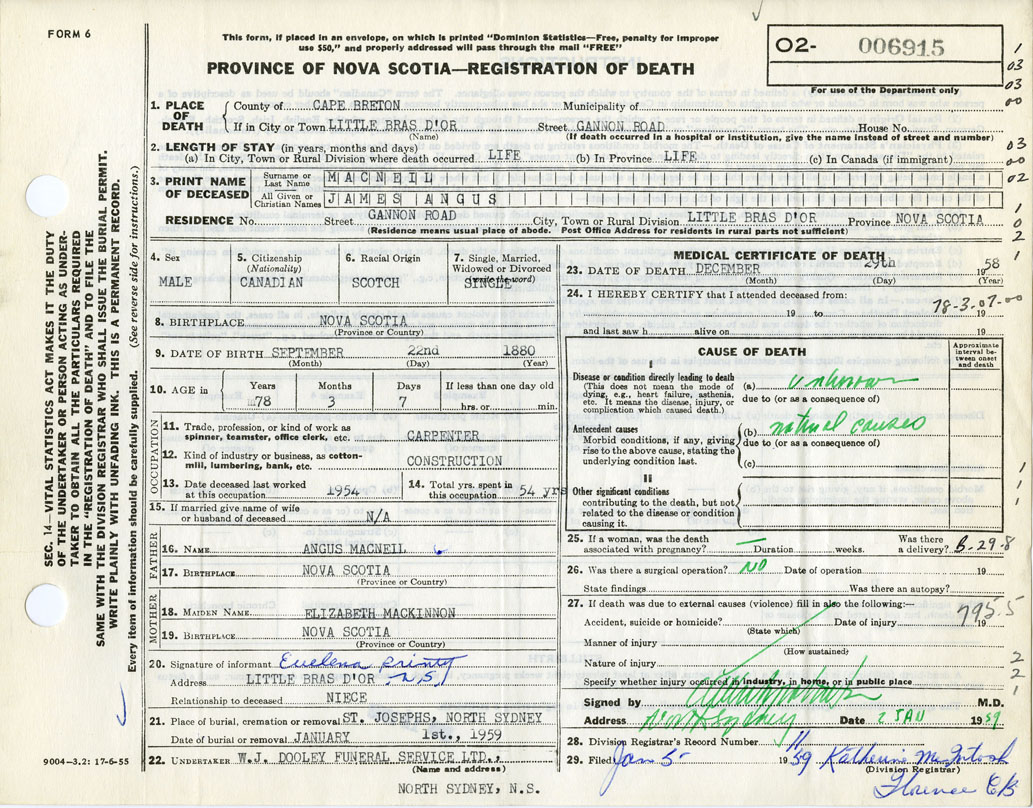 FORM 6
This form, if placed in an envelope, on which is printed "Dominion Statistics—Free, penalty for improper
use $50," and properly addressed will pass through the mail "FREE"
PROVINCE OF NOVA SCOTIA—REGISTRATION OF DEATH
02- 006915
For use of the Department only
1
03
03
00
03
00
02
1
0
2
SEC. 14—VITAL STATISTICS ACT MAKES IT THE DUTY
OF THE UNDERTAKER OR PERSON ACTING AS UNDER-
TAKER TO OBTAIN ALL THE PARTICULARS REQUIRED
IN THE "REGISTRATION OF DEATH" AND TO FILE THE
SAME WITH THE DIVISION REGISTRAR WHO SHALL ISSUE THE BURIAL PERMIT.
WRITE PLAINLY WITH UNFADING INK. THIS IS A PERMANENT RECORD.
Every item of information should be carefully supplied. (See reverse side for instructions.)
1. PLACE OF DEATH
County of CAPE BRETON Municipality of
If in City or Town LITTLE BRAS D'OR Street GANNON ROAD House No.
(Name) (If death occurred in a hospital or institution, give the name instead of street and number)
2. LENGTH OF STAY (in years, months and days)
(a) In City, Town or Rural Division where death occurred LIFE (b) In Province LIFE (c) In Canada (if immigrant)
3. PRINT NAME OF DECEASED
Surname or Last Name MACNEIL
All Given or Christian Names JAMES ANGUS
RESIDENCE No. Street GANNON ROAD City, Town or Rural Division LITTLE BRAS D'OR Province NOVA SCOTIA
(Residence means usual place of abode. Post Office Address for residents in rural parts not sufficient)
4. Sex
MALE
5. Citizenship
(Nationality)
CANADIAN
6. Racial Origin
SCOTCH
7. Single, Married,
Widowed or Divorced
(write the word)
SINGLE
8. BIRTHPLACE NOVA SCOTIA
(Province or Country)
9. DATE OF BIRTH SEPTEMBER 22nd 1880
(Month) (Day) (Year)
10. AGE in
Years Months Days If less than one day old
78 3 7 hrs. or min.
OCCUPATION
11. Trade, profession, or kind of work as
spinner, teamster, office clerk, etc. CARPENTER
12. Kind of industry or business, as cotton-
mill, lumbering, bank, etc. CONSTRUCTION
13. Date deceased last worked
at this occupation 1954
14. Total yrs. spent in
this occupation 54 yrs
15. If married give name of wife
or husband of deceased N/A
FATHER
16. NAME ANGUS MACNEIL
17. BIRTHPLACE NOVA SCOTIA
(Province or Country)
MOTHER
18. MAIDEN NAME ELIZABETH MACKINNON
19. BIRTHPLACE NOVA SCOTIA
(Province or Country)
20. Signature of informant Euelena Printy
Address LITTLE BRAS D'OR N.S.
Relationship to deceased NIECE
21. Place of burial, cremation or removal ST. JOSEPHS, NORTH SYDNEY
Date of burial or removal JANUARY 1st., 1959
22. UNDERTAKER W.J. DOOLEY FUNERAL SERVICE LTD.,
(Name and address)
NORTH SYDNEY, N.S.
9004-3.2: 17-6-55
MEDICAL CERTIFICATE OF DEATH
23. DATE OF DEATH DECEMBER 29th 1958
(Month) (Day) (Year)
24. I HEREBY CERTIFY that I attended deceased from:
78-3.07-00
19 to 19
and last saw h alive on 19
CAUSE OF DEATH
Approximate
interval be-
tween onset
and death
I
Disease or condition directly leading to death
(This does not mean the mode of
dying, e.g., heart failure, asthenia,
etc. It means the disease, injury, or
complication which caused death.)
(a) unknown
due to (or as a consequence of)
Antecedent causes
Morbid conditions, if any, giving
rise to the above cause, stating the
underlying condition last.
(b) natural causes
due to (or as a consequence of)
(c)
II
Other significant conditions
contributing to the death, but not
related to the disease or condition
causing it.
1
1
1
25. If a woman, was the death Was there
associated with pregnancy? — Duration weeks. a delivery? B-29-8
26. Was there a surgical operation? NO Date of operation 19
State findings Was there an autopsy?
27. If death was due to external causes (violence) fill in also the following:—
795.5
Accident, suicide or homicide? Date of injury 19
(State which)
Manner of injury
(How sustained)
Nature of injury
Specify whether injury occurred in industry, in home, or in public place
2
2
1
Signed by M.D.
Address North Sydney Date 2 JAN 1959
28. Division Registrar's Record Number 11
29. Filed Jan 5 1959 Katherine McIntosh
(Division Registrar)
Florence CB